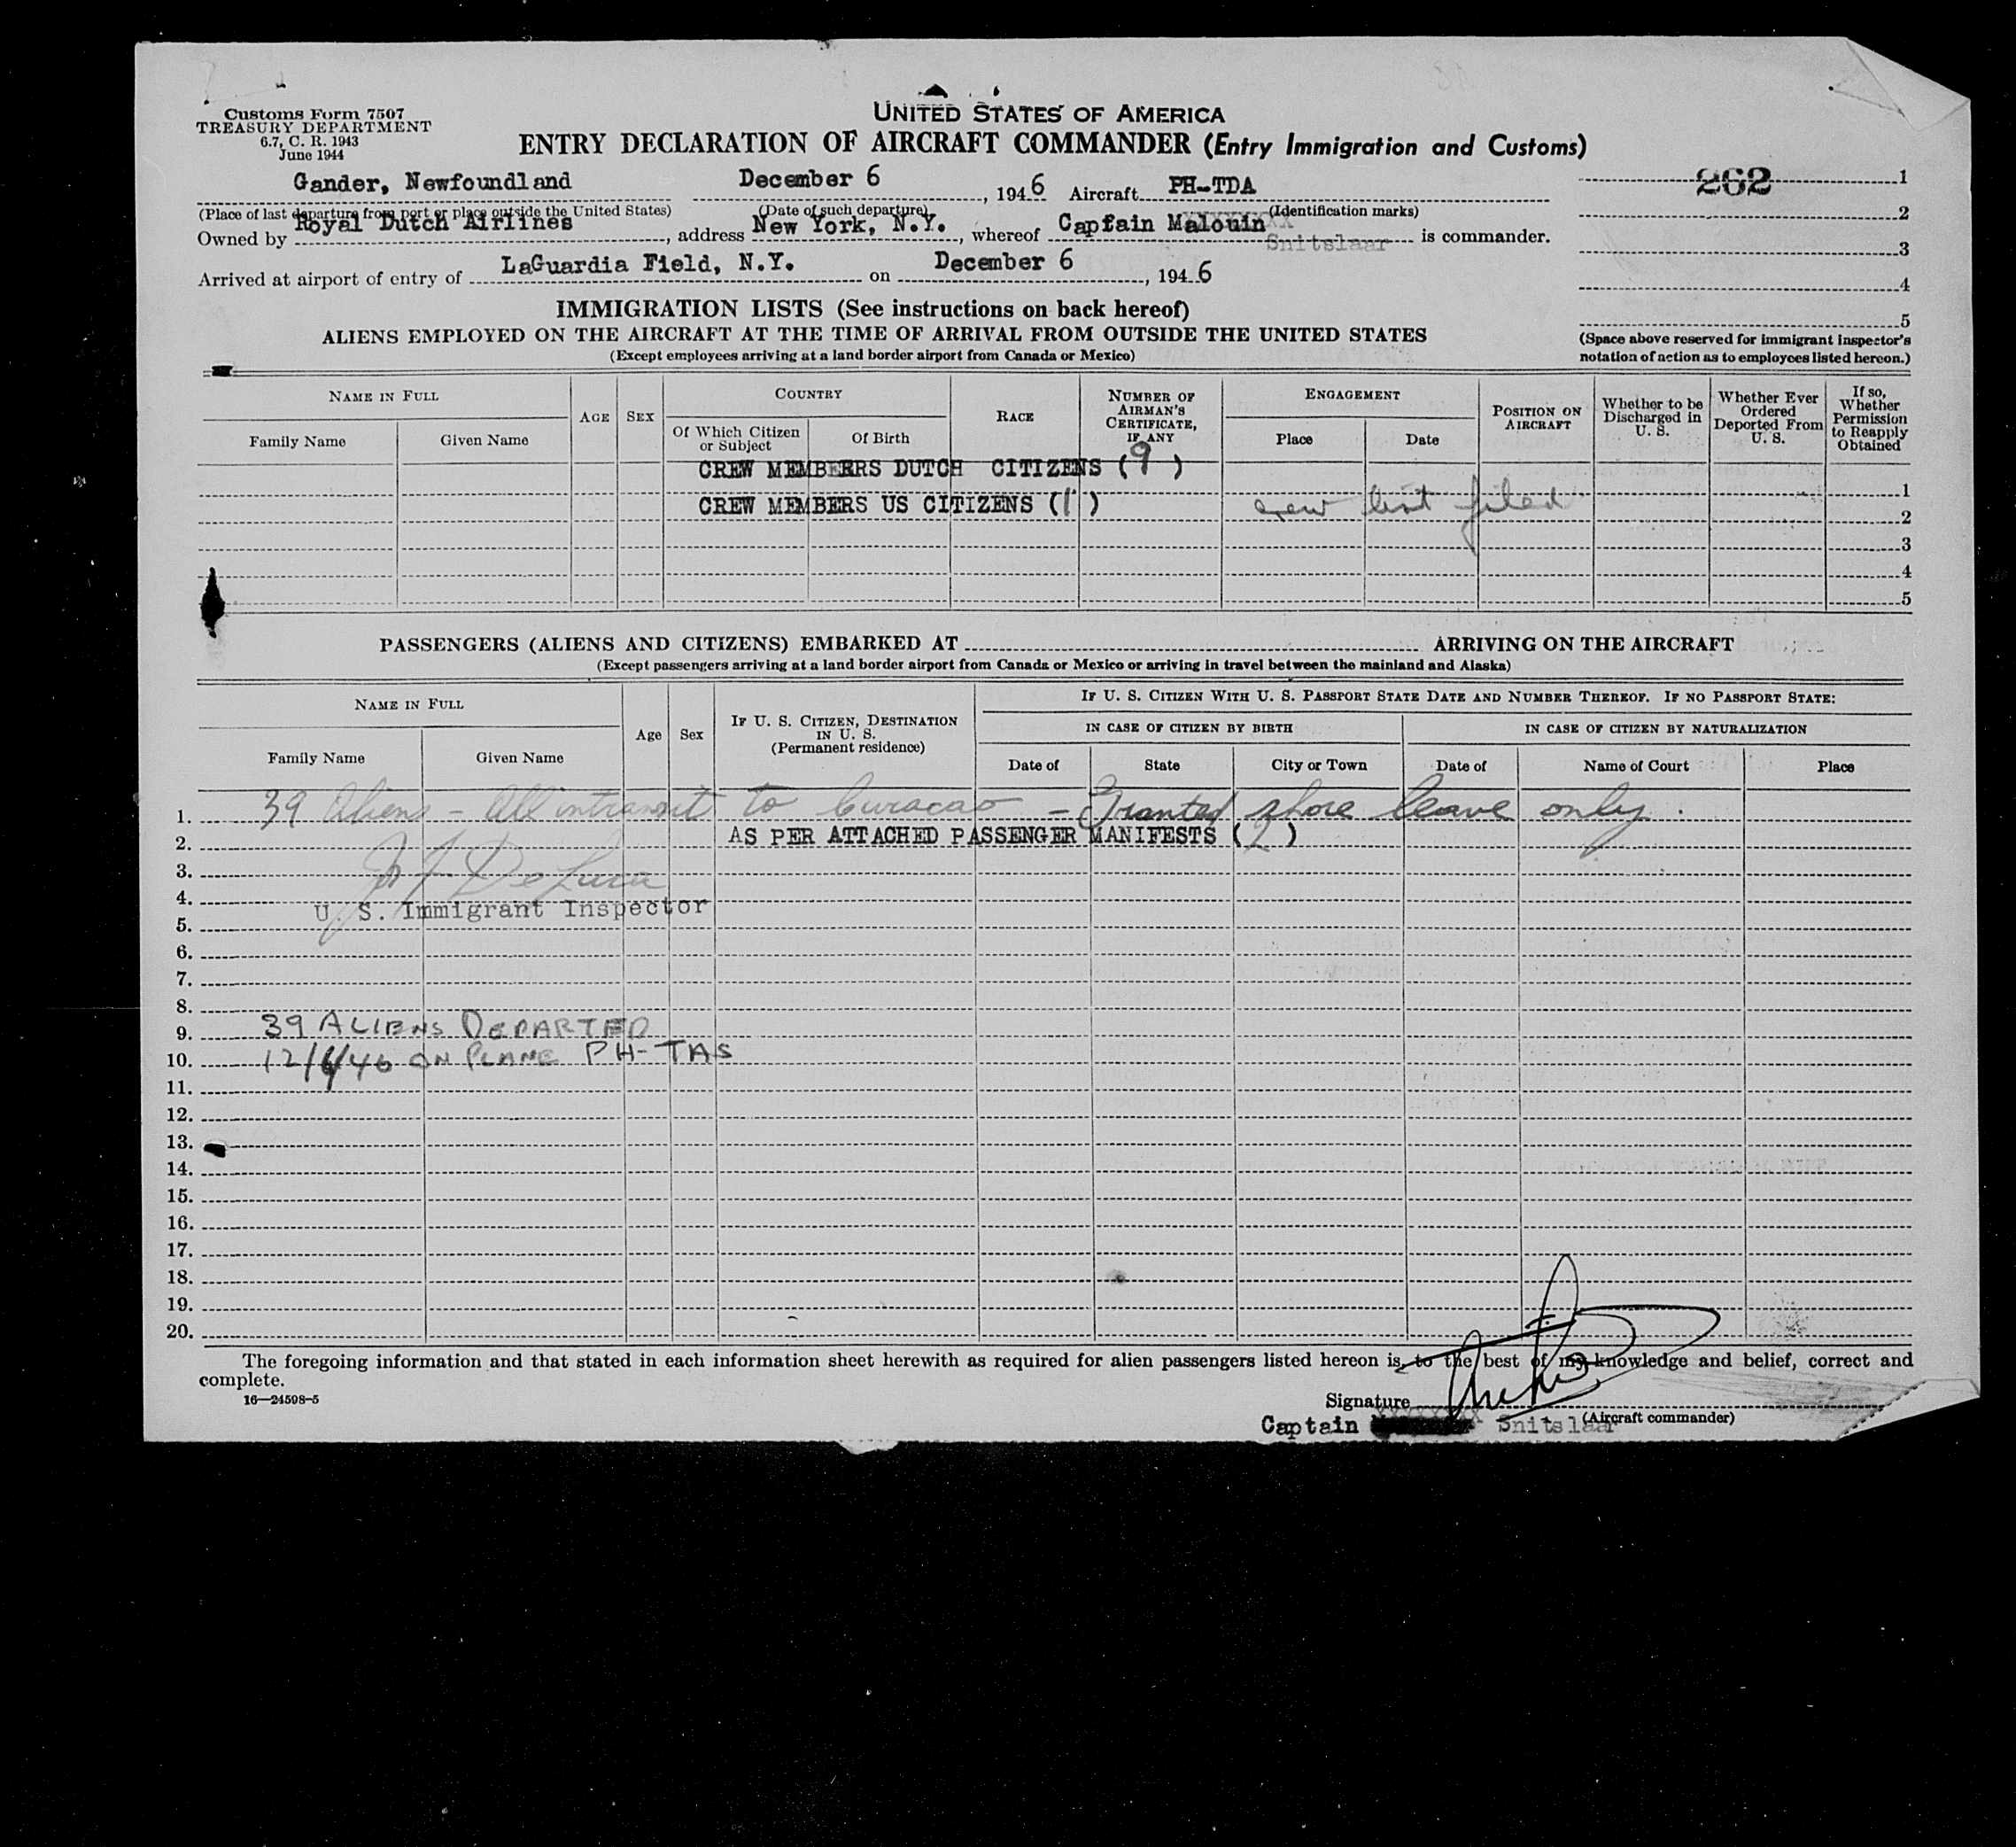 Customs Form 7507
TREASURY DEPARTMENT
6.7, C. R. 1943
June 1944
UNITED STATES OF AMERICA
ENTRY DECLARATION OF AIRCRAFT COMMANDER (Entry Immigration and Customs)
Gander, Newfoundland December 6, 1946 Aircraft PH-TDA
(Place of last departure from port or place outside the United States) (Date of such departure) (Identification marks)
Owned by Royal Dutch Airlines, address New York, N.Y., whereof Captain Malouin Snitslaar is commander.
Arrived at airport of entry of LaGuardia Field, N.Y. on December 6, 1946
262 1
2
3
4
5
(Space above reserved for immigrant inspector's
notation of action as to employees listed hereon.)
IMMIGRATION LISTS (See instructions on back hereof)
ALIENS EMPLOYED ON THE AIRCRAFT AT THE TIME OF ARRIVAL FROM OUTSIDE THE UNITED STATES
(Except employees arriving at a land border airport from Canada or Mexico)
NAME IN FULL
Family Name Given Name
AGE SEX
COUNTRY
Of Which Citizen or Subject
Of Birth
RACE
NUMBER OF AIRMAN'S CERTIFICATE, IF ANY
ENGAGEMENT
Place Date
POSITION ON AIRCRAFT
Whether to be Discharged in U. S.
Whether Ever Ordered Deported From U. S.
If so, Whether Permission to Reapply Obtained
CREW MEMBERRS DUTCH CITIZENS (9)
1
CREW MEMBERS US CITIZENS (1) crew list filed
2
3
4
5
PASSENGERS (ALIENS AND CITIZENS) EMBARKED AT ARRIVING ON THE AIRCRAFT
(Except passengers arriving at a land border airport from Canada or Mexico or arriving in travel between the mainland and Alaska)
NAME IN FULL
Family Name Given Name
Age Sex
IF U. S. CITIZEN, DESTINATION IN U. S.
(Permanent residence)
IF U. S. CITIZEN WITH U. S. PASSPORT STATE DATE AND NUMBER THEREOF. IF NO PASSPORT STATE:
IN CASE OF CITIZEN BY BIRTH IN CASE OF CITIZEN BY NATURALIZATION
Date of State City or Town Date of Name of Court Place
1. 39 Aliens - All intransit to Curacao - Granted shore leave only.
2. AS PER ATTACHED PASSENGER MANIFESTS (2)
3. De Luca
4. U. S. Immigrant Inspector
5.
6.
7.
8.
9. 39 ALIENS DEPARTED
10. 12/6/46 ON PLANE PH-TAS
11.
12.
13.
14.
15.
16.
17.
18.
19.
20.
The foregoing information and that stated in each information sheet herewith as required for alien passengers listed hereon is, to the best of my knowledge and belief, correct and
complete.
16—24598-5
Signature
(Aircraft commander)
Captain Snitslaar